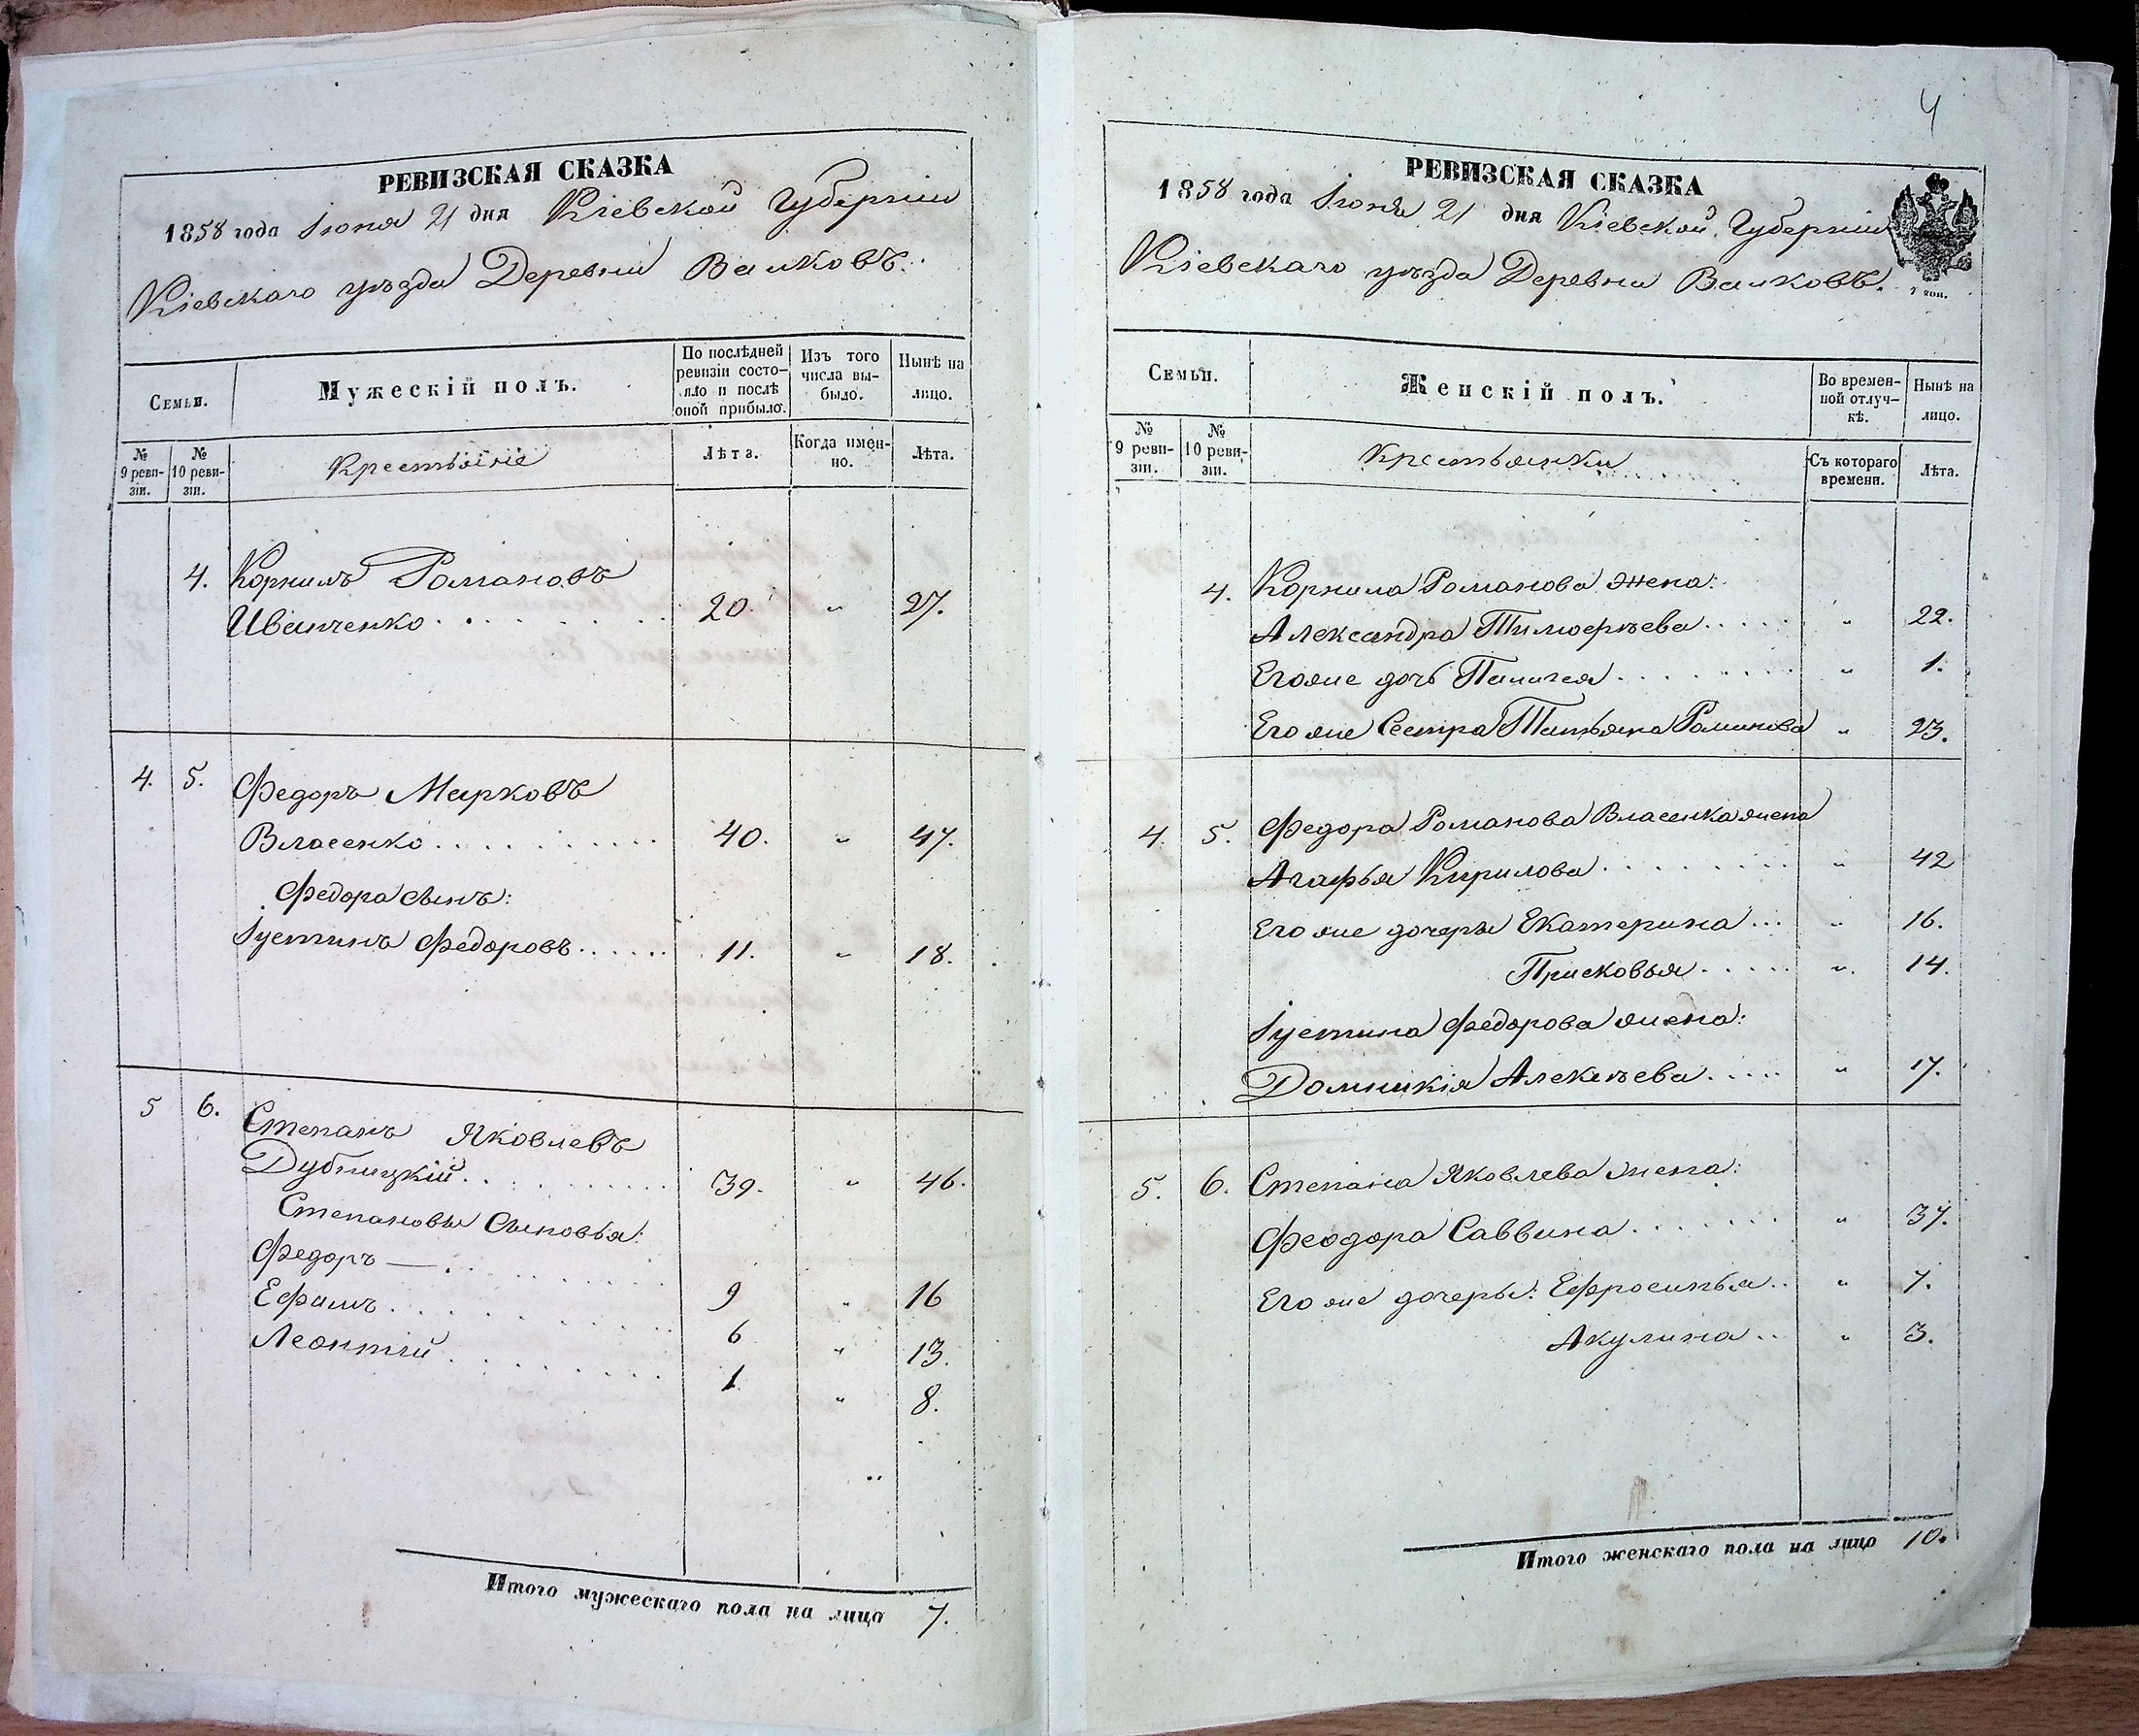 РЕВИЗСКАЯ СКАЗКА
1858 года Іюня 21 дня Кіевской Губерніи
Кіевскаго уѣзда Деревни Валковъ.
Семьи.
Мужескій полъ.
По послѣдней ревизіи состояло и послѣ оной прибыло.
Изъ того числа выбыло.
Нынѣ на лицо.
№ 9 ревизіи.
№ 10 ревизіи.
Крестьяне
Лѣта.
Когда именно.
Лѣта.
4. Корнилъ Романовъ
Иванченко 20. " 27.
4. 5. Федоръ Марковъ
Власенко 40. " 47.
Федора сынъ:
Іустинъ Федоровъ 11. " 18.
5 6. Степанъ Яковлевъ
Дубницкій 39. " 46.
Степановы Сыновья:
Федоръ — 9 " 16
Ефимъ 6 " 13.
Леонтій 1 " 8.
Итого мужескаго пола на лицо 7.
4
РЕВИЗСКАЯ СКАЗКА
1858 года Іюня 21 дня Кіевской Губерніи
Кіевскаго уѣзда Деревни Валковъ.
Семьи.
Женскій полъ.
Во временной отлучкѣ.
Нынѣ на лицо.
№ 9 ревизіи.
№ 10 ревизіи.
Крестьянки
Съ котораго времени.
Лѣта.
4. Корнила Романова жена:
Александра Тимофѣева " 22.
Его же дочь Палагея " 1.
Его же Сестра Татьяна Романова " 23.
4. 5. Федора Романова Власенка жена
Агафья Кирилова " 42
Его же дочеры Екатерина " 16.
Прасковья " 14.
Іустина Федорова жена:
Домникія Алексѣева " 17.
5. 6. Степана Яковлева жена:
Феодора Саввина " 37.
Его же дочеры: Ефросинья " 7.
Акулина " 3.
Итого женскаго пола на лицо 10.